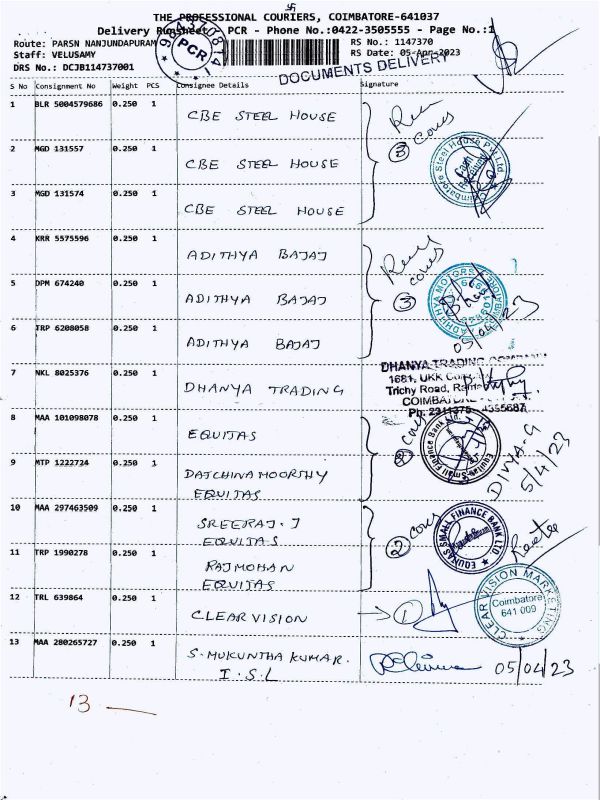 THE PROFESSIONAL COURIERS, COIMBATORE-641037
Delivery Runsheet PCR - Phone No.:0422-3505555 - Page No.:1
Route: PARSN NANJUNDAPURAM
RS No.: 1147370
Staff: VELUSAMY
RS Date: 05-Apr-2023
DRS No.: DCJB114737001
PCR
DOCUMENTS DELIVERY
S No Consignment No Weight PCS Consignee Details Signature
1 BLR 5004579686 0.250 1 CBE STEEL HOUSE
2 MGD 131557 0.250 1 CBE STEEL HOUSE
3 MGD 131574 0.250 1 CBE STEEL HOUSE
3 cours
Coimbatore Steel House Pvt Ltd
4 KRR 5575596 0.250 1 ADITHYA BAJAJ
5 DPM 674240 0.250 1 ADITHYA BAJAJ
6 TRP 6208058 0.250 1 ADITHYA BAJAJ
cours
3
05/04/23
7 NKL 8025376 0.250 1 DHANYA TRADING
DHANYA TRADING COMPANY
1681, UKK
Trichy Road,
COIMBATORE
8 MAA 101098078 0.250 1 EQUITAS
9 MTP 1222724 0.250 1 DATCHINA MOORTHY
EQUITAS
2 cours
Equitas Small Finance Bank Ltd.
DIVYA-G
5/4/23
10 MAA 297463509 0.250 1 SREERAJ. J
EQUITAS
11 TRP 1990278 0.250 1 RAJMOHAN
EQUITAS
2 cours
EQUITAS SMALL FINANCE BANK LTD.
12 TRL 639864 0.250 1 CLEAR VISION
1
CLEAR VISION MARKETING
Coimbatore
641 009
13 MAA 280265727 0.250 1 S. MUKUNTHA KUMAR.
I.S.L
05/04/23
13